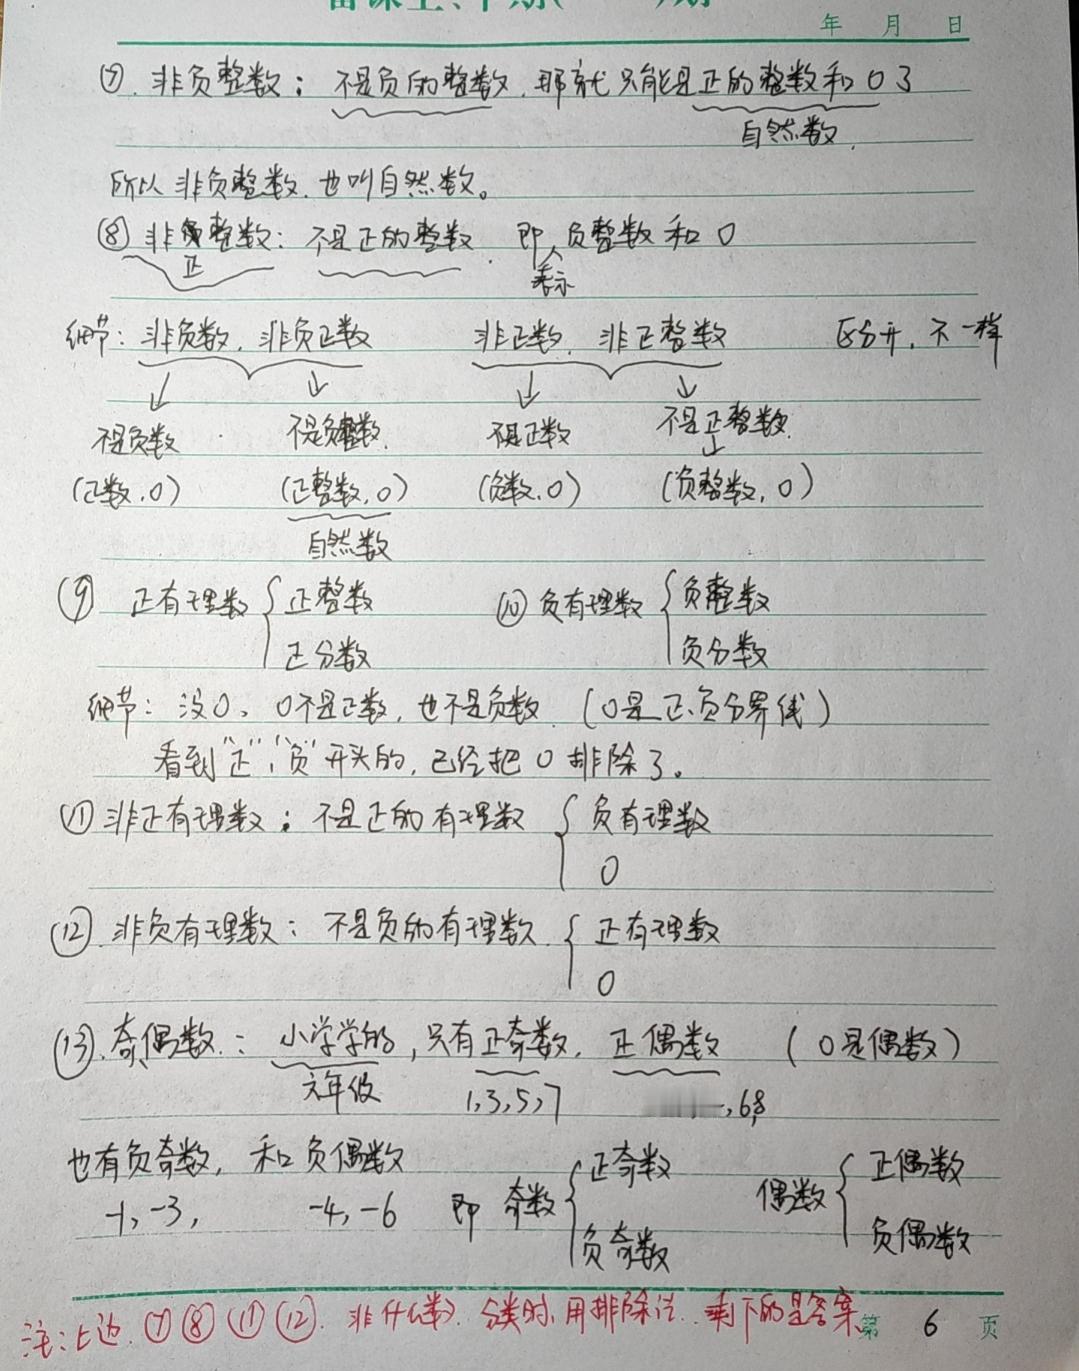 年 月 日
⑦. 非负整数: 不是负的整数. 那就只能是正的整数和0了
自然数.
所以非负整数. 也叫自然数。
⑧ 非正整数: 不是正的整数. 即表示负整数和0
细节: 非负数. 非负正数 非正数. 非正整数 区分开. 不一样
不是负数 不是负整数. 不是正数 不是正整数.
(正数.0) (正整数,0) (负数.0) (负整数,0)
自然数
⑨ 正有理数 { 正整数 ⑩ 负有理数 { 负整数
正分数 负分数
细节: 没0. 0不是正数, 也不是负数. (0是正.负分界线)
看到“正”,“负”开头的, 已经把0排除了。
⑪ 非正有理数: 不是正的有理数 { 负有理数
0
⑫. 非负有理数: 不是负的有理数. { 正有理数
0
⑬. 奇偶数.: 小学学的, 只有正奇数. 正偶数 (0是偶数)
六年级 1,3,5,7 ,6,8
也有负奇数, 和负偶数 即 奇数 { 正奇数 偶数 { 正偶数
-1,-3, -4,-6 负奇数 负偶数
注:上边.⑦⑧⑪⑫. 非什么数. 分类时.用排除法..剩下的是答案
第 6 页